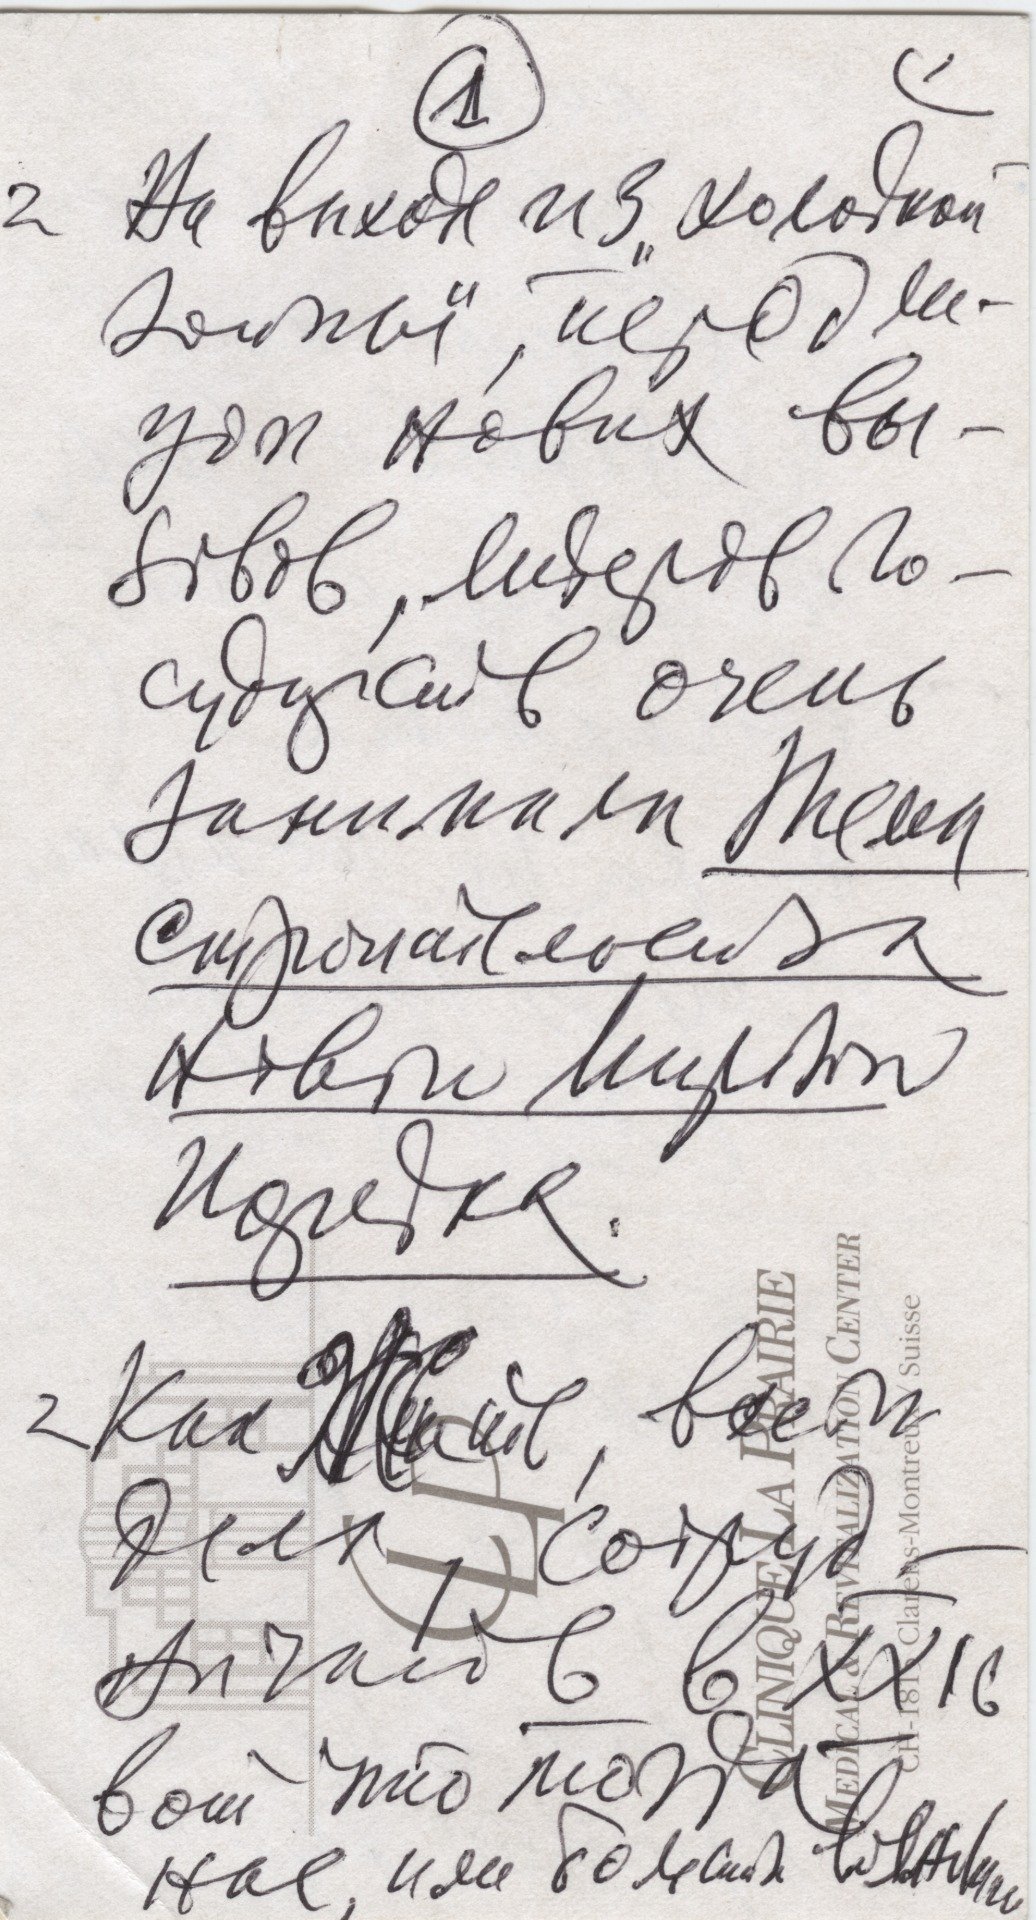 1
2 На выходе из „холодной
войны“, перед ли-
цом новых вы-
зовов, лидеров го-
сударств очень
занимала тема
строительства
нового мирового
порядка.
2 Как жить, вести
дела, сотруд-
ничать в XXI в
вот что тогда
нас, или больше
CLINIQUE LA PRAIRIE
MEDICAL & REVITALIZATION CENTER
CH-1815 Clarens-Montreux Suisse